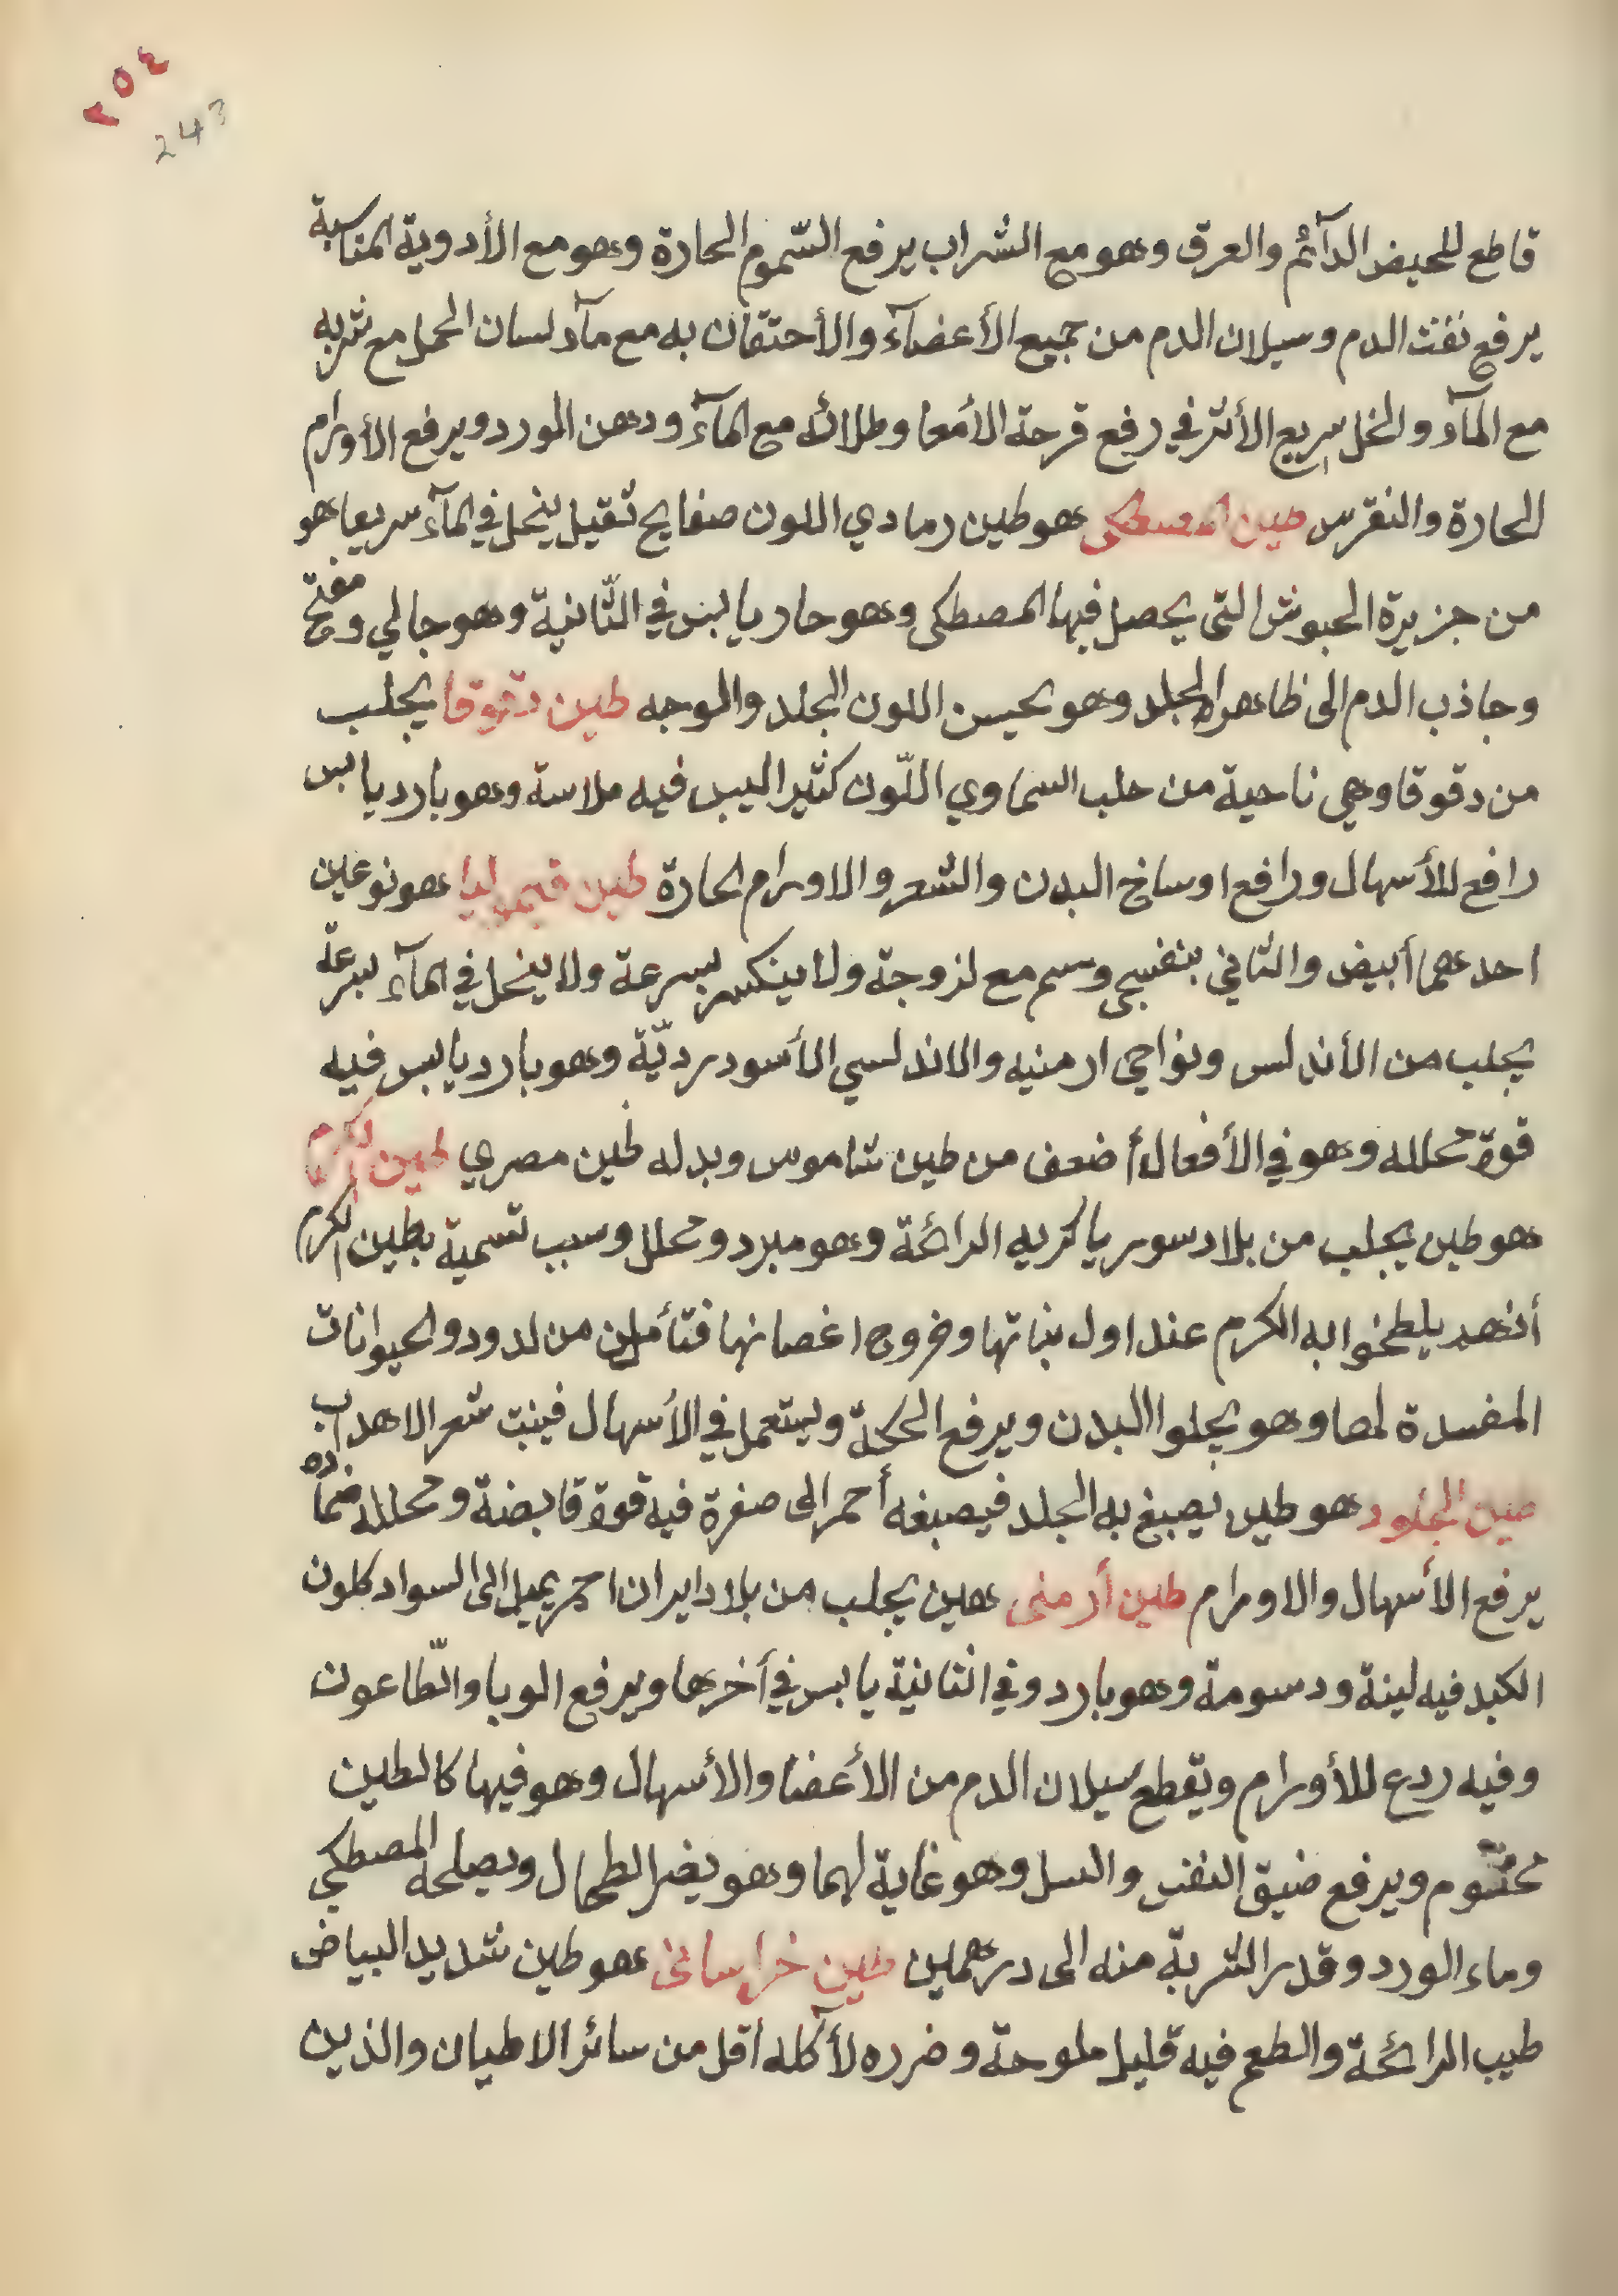 ٢٥٤
243
قاطع للحيض الدآئم والعرق وهو مع الشراب يرفع السّموم الحارة وهو مع الأدوية المناسبة
يرفع نفث الدم وسيلان الدم من جميع الأعضآء والأحتقان به مع مآء لسان الحمل مع شربه
مع المآء والخل سريع الأثر في رفع قرحة الأمعا وطلائه مع المآء ودهن الورد ويرفع الأورام
الحارة والنقرس طين المصطكى هو طين رمادي اللون صفايح ثقيل ينحل في المآء سريعا هو
من جزيرة الحبوش التى يحصل فيها المصطكى وهو حار يابس في الثّانية وهو جالي ومفتح
وجاذب الدم الى ظاهر الجلد وهو يحسن اللون الجلد والوجه طين دقوقا يجلب
من دقوقا وهي ناحية من حلب السماوي اللّون كثير اليبس فيه ملاسة وهو بارد يابس
رافع للأسهال ورافع اوساخ البدن والشعر والاورام الحارة طين قيموليا هو نوعين
احدهما أبيض والثاني بنفسجي وسم مع لزوجة ولا ينكسر بسرعة ولا ينحل في المآء بسرعة
يجلب من الأندلس ونواحي ارمنيه والاندلسي الأسود رديّة وهو بارد يابس فيه
قوة محلله وهو في الأفعال أضعف من طين شاموس وبدله طين مصري طين الكرم
هو طين يجلب من بلاد سوريا كريه الرائحة وهو مبرد ومحلل وسبب تسمية بطين الكرم
أنهم يلطخوا به الكرم عند اول نباتها وخروج اغصانها فتأمن من لدود والحيوانات
المفسدة لها وهو يجلوا البدن ويرفع الحكة ويستعمل في الأسهال فينبت شعر الاهداب
طين الجلود هو طين يصبغ به الجلد فيصبغه أحمر الى صفرة فيه قوة قابضة ومحلله ضماده
يرفع الأسهال والاورام طين أرمنى هين يجلب من بلاد ايران احمر يميل الى السواد كلون
الكبد فيه لينة ودسومة وهو بارد وفي الثانية يابس في أخرها ويرفع الوبا والطّاعون
وفيه ردع للأورام ويقطع سيلان الدم من الأعضا والأسهال وهو فيها كالطين
مختوم ويرفع ضيق النفس والسل وهو غاية لهما وهو يضر الطحال ويصلحه المصطكي
وماء الورد وقدر الشربة منه الى درهمين طين خراسانى هو طين شديد البياض
طيب الرائحة والطعم فيه قليل ملوحة وضرره لأكله اقل من سائر الاطيان والذين